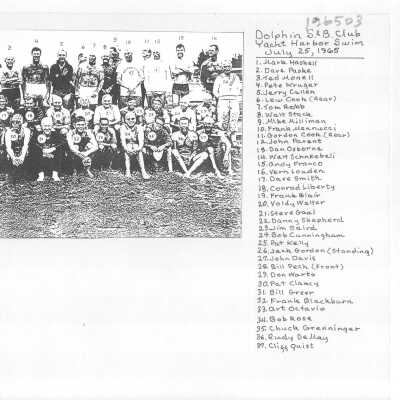 196503
Dolphin S&B. Club
Yacht Harbor Swim
July 25, 1965
1. Mark Haskell
2. Dave Paske
3. Ted Monell
4. Pete Kruger
5. Jerry Cullen
6. Lew Cook (Rear)
7. Tom Robb
8. Walt Stack
9. Mike Milliman
10. Frank Mannucci
11. Gordon Cook (Rear)
12. John Parent
13. Dan Osborne
14. Walt Schnebeli
15. Andy Franco
16. Vern Louden
17. Dave Smith
18. Conrad Liberty
19. Frank Blair
20. Voldy Walter
21. Steve Gaal
22. Danny Shepherd
23. Jim Baird
24. Bob Cunningham
25. Pat Kelly
26. Jack Gordon (Standing)
27. John Davis
28. Bill Pech (Front)
29. Don Warto
30. Pat Clancy
31. Bill Greer
32. Frank Blackburn
33. Art Octavio
34. Bob Rose
35. Chuck Grenninger
36. Rudy DeMay
37. Cliff Quist